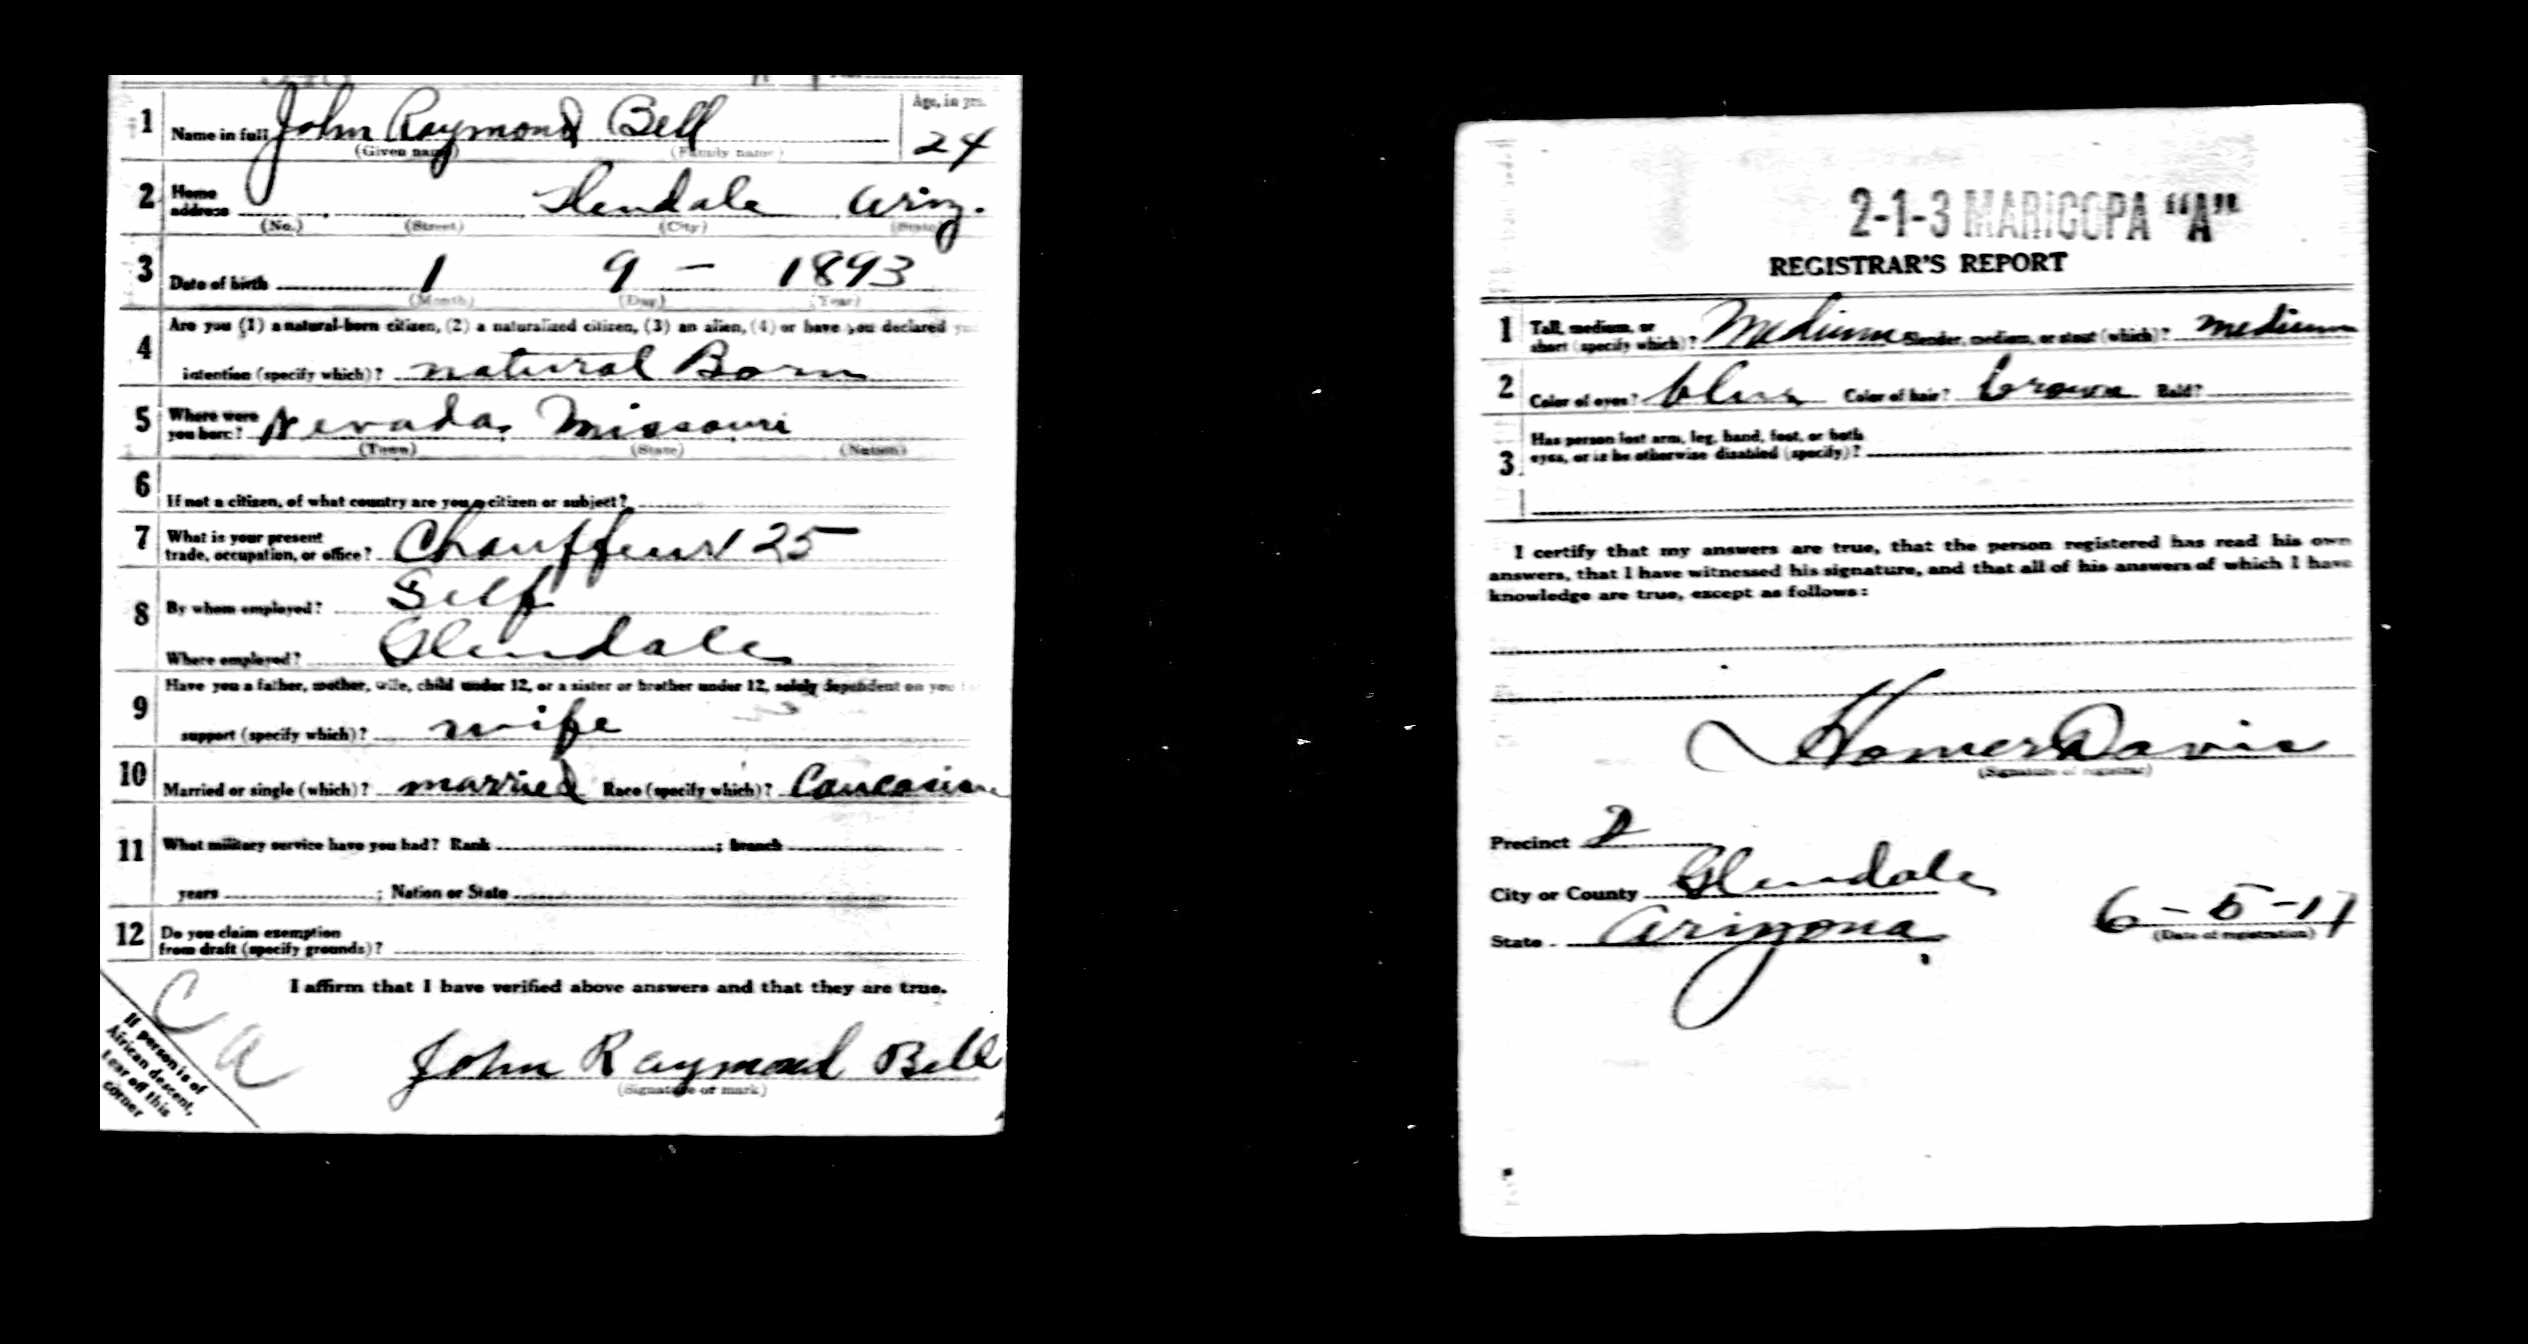 Age, in yrs.
1 Name in full John Raymond Bell 24
(Given name) (Family name)
2 Home address Glendale Ariz.
(No.) (Street) (City) (State)
3 Date of birth 1 9 - 1893
(Month) (Day) (Year)
Are you (1) a natural-born citizen, (2) a naturalized citizen, (3) an alien, (4) or have you declared your
4 intention (specify which)? natural Born
5 Where were you born? Nevada, Missouri
(Town) (State) (Nation)
6 If not a citizen, of what country are you a citizen or subject?
7 What is your present
trade, occupation, or office? Chauffeur 25
8 By whom employed? Self
Where employed? Glendale
Have you a father, mother, wife, child under 12, or a sister or brother under 12, solely dependent on you for
9 support (specify which)? wife
10 Married or single (which)? married Race (specify which)? Caucasian
11 What military service have you had? Rank ; branch
years ; Nation or State
12 Do you claim exemption
from draft (specify grounds)?
I affirm that I have verified above answers and that they are true.
C
a
If person is of
African descent,
tear off this
corner
John Raymond Bell
(Signature or mark)
2-1-3 MARICOPA "A"
REGISTRAR'S REPORT
1 Tall, medium, or
short (specify which)? Medium Slender, medium, or stout (which)? medium
2 Color of eyes? blue Color of hair? brown Bald?
Has person lost arm, leg, hand, foot, or both
3 eyes, or is he otherwise disabled (specify)?
I certify that my answers are true, that the person registered has read his own
answers, that I have witnessed his signature, and that all of his answers of which I have
knowledge are true, except as follows:
Homer Davis
(Signature of registrar)
Precinct 2
City or County Glendale
State Arizona 6-5-17
(Date of registration)